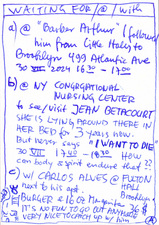 WAITING FOR/@/with
a) @ "Barber Arthur" I followed
him from Little Italy to
Brooklyn 499 Atlantic Ave
30 VII 2024 16 30 - 17 00
b) @ NY CONGREGATIONAL
NURSING CENTER
to see/visit JEAN BETACOURT
SHE IS LYING AROUND THERE IN
HER BED for 3 years now.
But never says "I WANT TO DIE"
30 VII 17 40 - 18 30 How ??
can body & spirit endure that
c) w/ CARLOS ALVES @ FULTON
next to his apt. HALL Brooklyn
BURGER & 16 oz
IT'S NO FUN TO GO OUT ANYMORE
VERY NICE TO CATCH UP w/ him